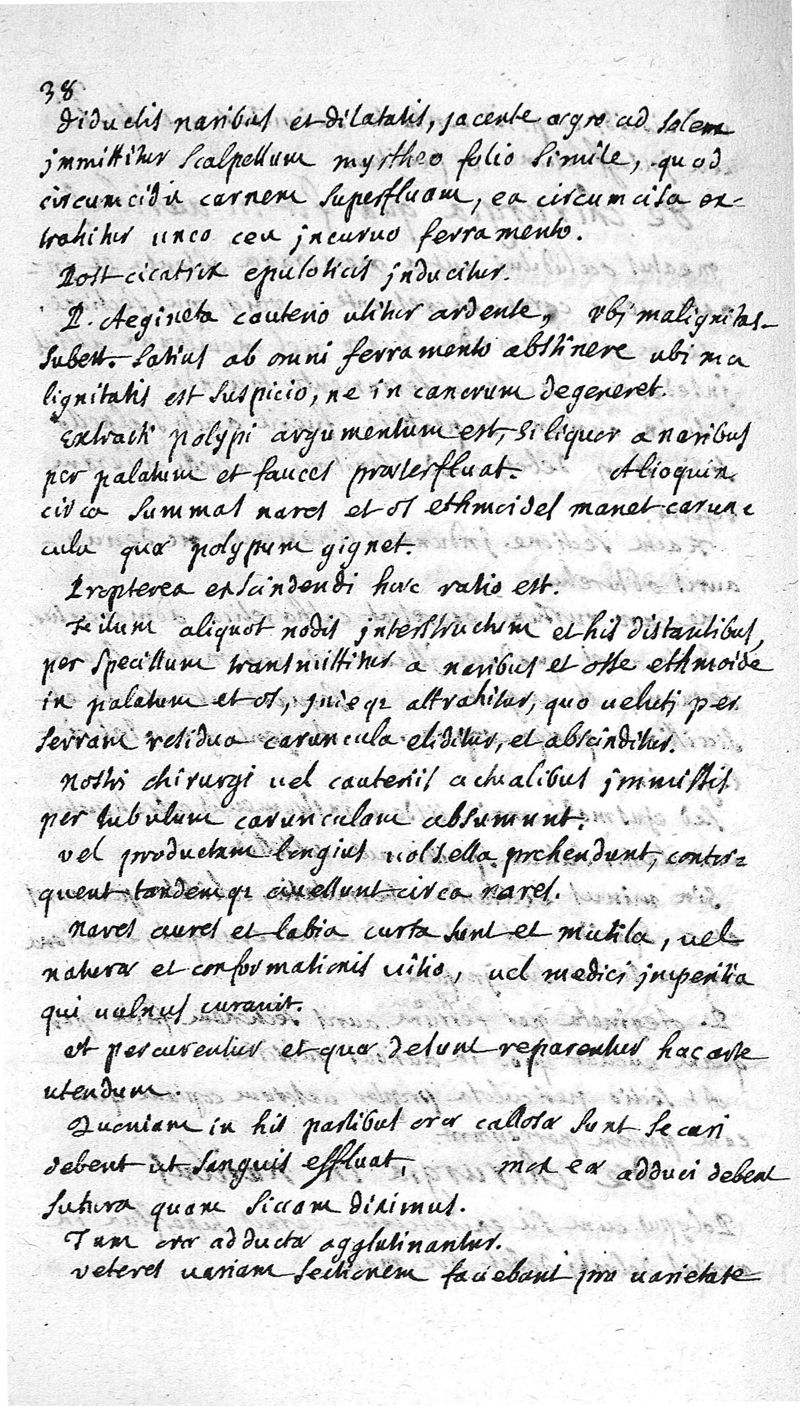 38
diductis naribus et dilatatis, jacente ægro ad solem
jmmittitur scalpellum myrtheo folio simile, quod
circumcidit carnem superfluam, ea circumcisa ex-
trahitur unco ceu jncuruo ferramento.
Post cicatrix epuloticis jnducitur.
P. Aegineta cauterio utitur ardente, ubi malignitas
subest. Satius ab omni ferramento abstinere ubi ma
lignitatis est suspicio, ne in cancrum degeneret.
Extracti polypi argumentum est, si liquor a naribus
per palatum et fauces præterfluat. Alioquin
circa summas nares et os ethmoides manet carun=
cula quæ polypum gignet.
Propterea exscindendi hæc ratio est.
Filum aliquot nodis jnterstructum et his distantibus,
per specillum transmittitur a naribus et osse ethmoide
in palatum et os, attrahitur, quo ueluti per
serram residua caruncula eliditur, et abscinditur.
Nostri chirurgi uel cauteriis actualibus jmmissis
per tubulum carunculam absumunt.
vel productam longius uolsella prehendunt, contor=
quent tandemq2 auellunt circa nares.
Nares aures et labia curta sunt et mutila, uel
naturæ et conformationis uitio, uel medici jmperitia
qui uulnus curauit.
ut percurentur et quæ desunt reparentur hac arte
utendum.
Quoniam in his partibus oræ callosæ sunt secari
debent ut sanguis effluat, mox eæ adduci debent
sutura quam siccam diximus.
Tum oræ adductæ agglutinantur.
veteres uariam sectionem faciebant pro uarietate